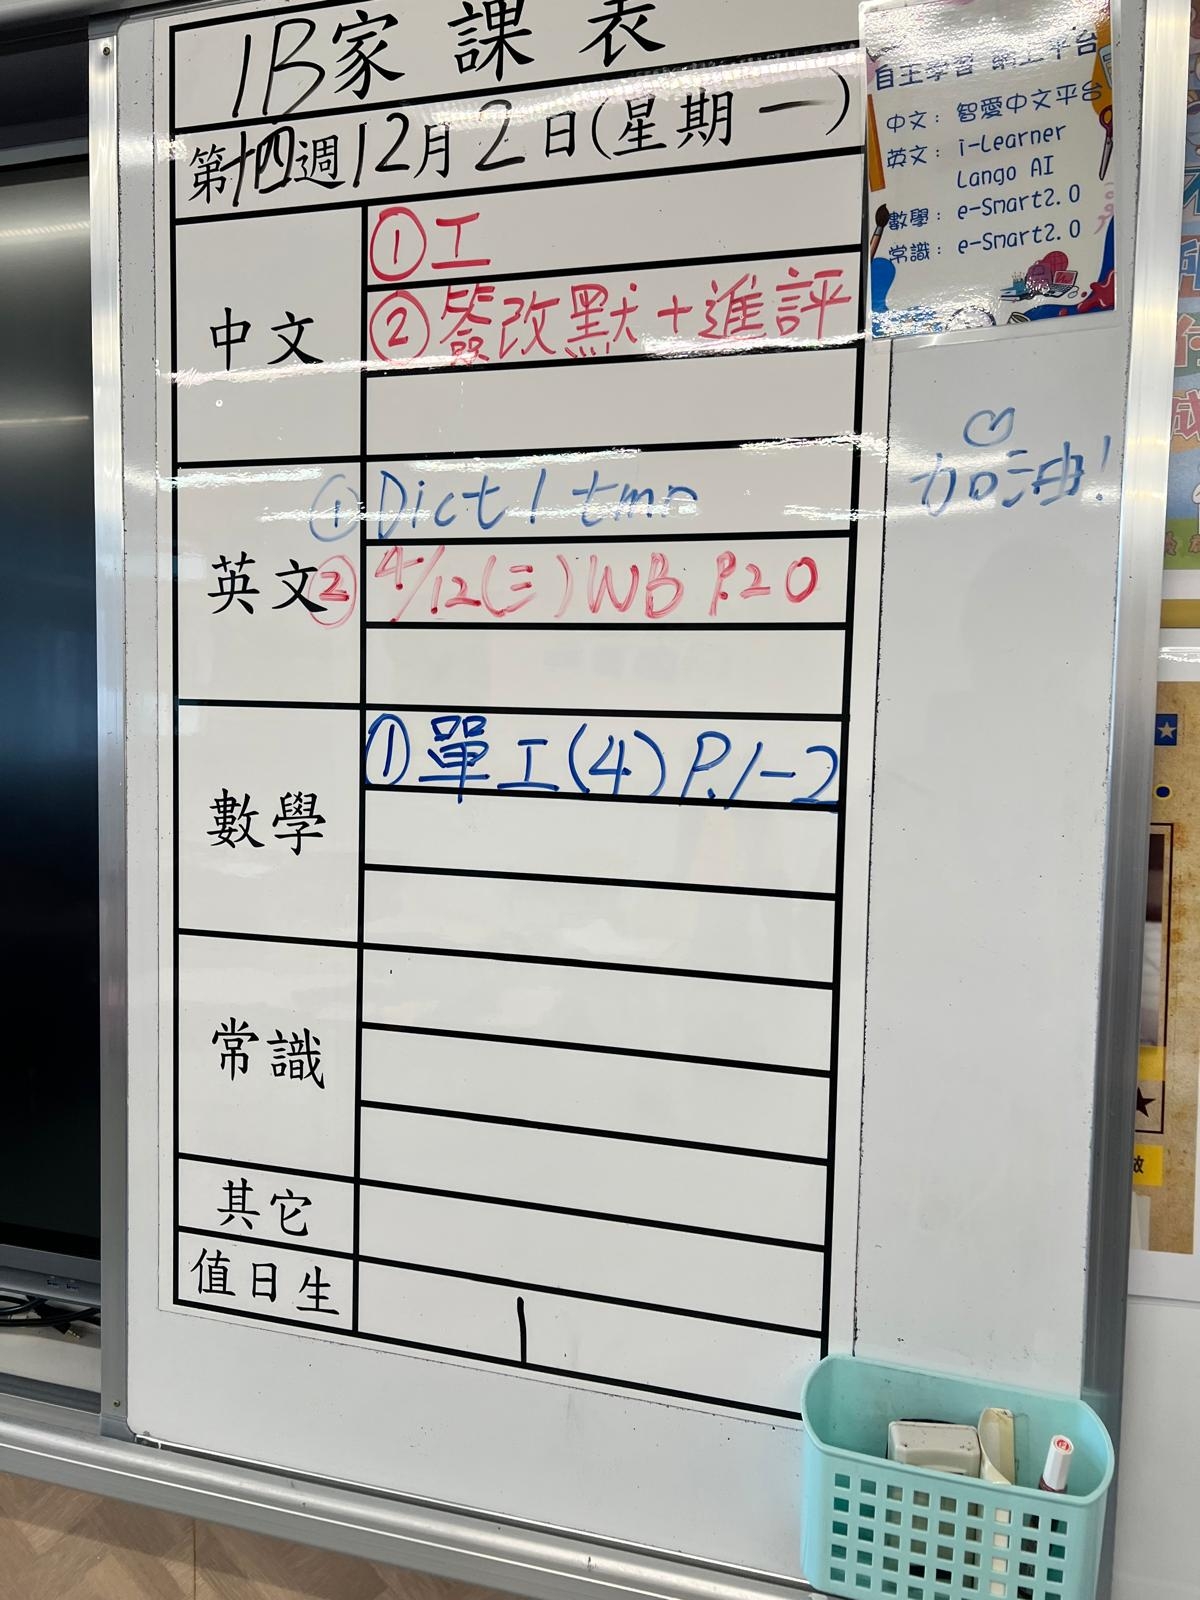 1B家課表
第十四週12月2日(星期一)
中文
①工
②簽改默+進評
英文
①Dict 1 tmr
②4/12(三)WB P.20
數學
①單工(4)P.1-2
常識
其它
值日生
1
自主學習 網上平台
中文：智愛中文平台
英文：i-Learner
Lango AI
數學：e-Smart2.0
常識：e-Smart2.0
加油!